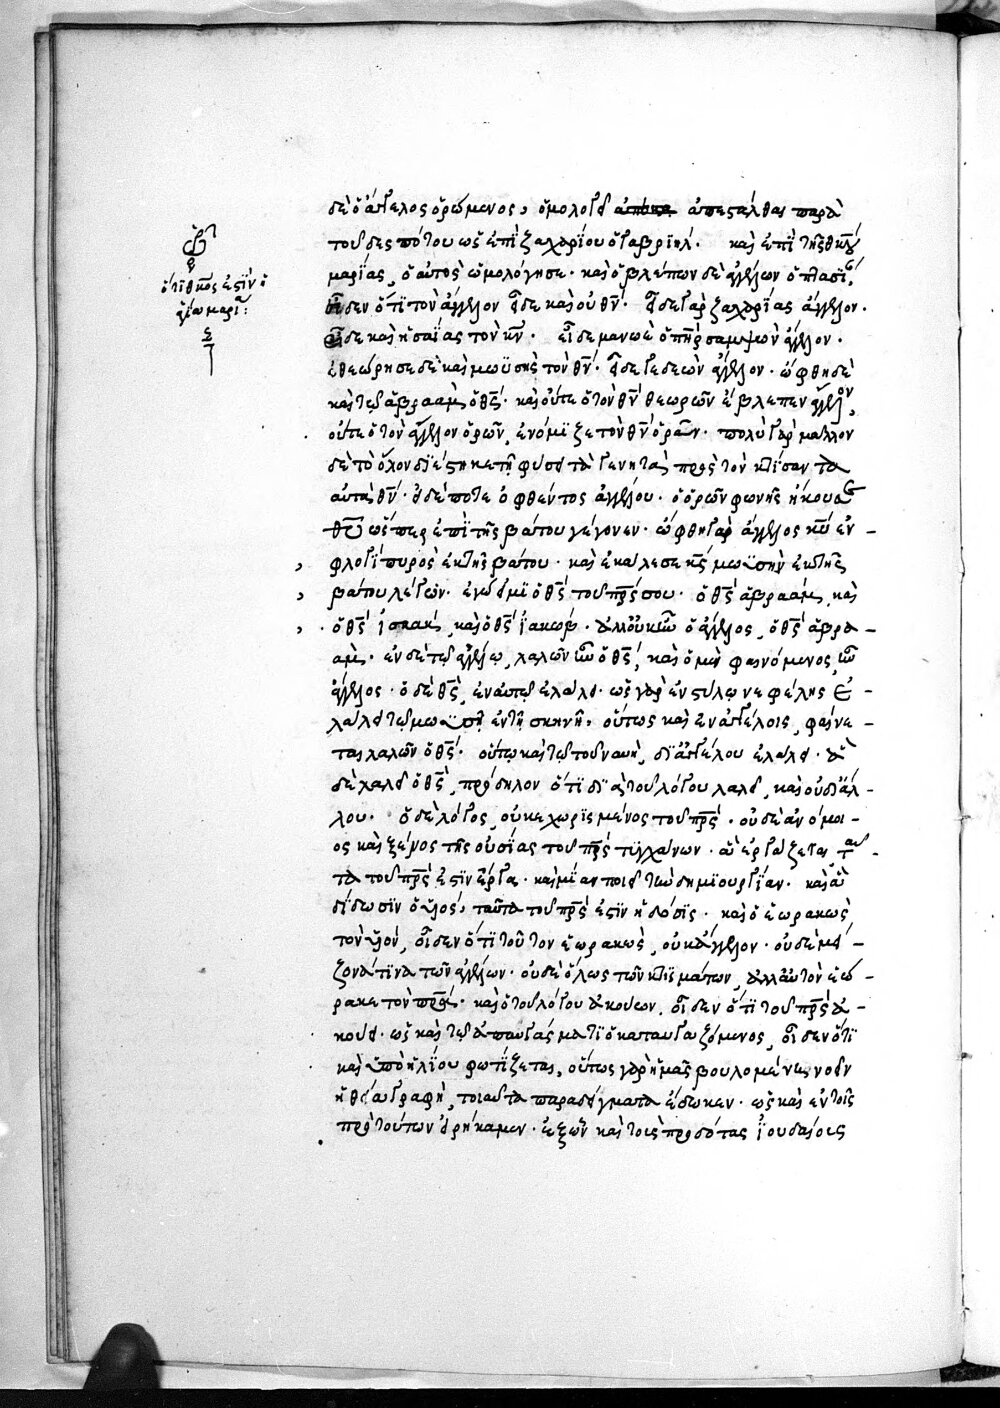 ὅτι θκος ἐστὶν ἡ
ἁγία μαρία:
δὲ ὁ ἄγγελος ὁρώμενος, ὁμολογεῖ ἀπεστάλθαι παρὰ
τοῦ δεσπότου ὡς ἐπὶ ζαχαρίου ὁ γαβριὴλ. καὶ ἐπὶ τῆς θκου
μαρίας, ὁ αὐτὸς ὡμολόγησε. καὶ ὁ βλέπων δὲ ἀγγέλων ὀπτασίαν,
οἶδεν ὅτι τὸν ἄγγελον εἶδε καὶ οὐ θν. εἶδε γὰρ ζαχαρίας ἄγγελον.
εἶδε καὶ ἡσαΐας τὸν κν. εἶδε μανωὲ ὁ πηρ σαμψὼν ἄγγελον.
ἐθεώρησε δὲ καὶ μωϋσῆς τὸν θν. εἶδε γεδεὼν ἄγγελον. ὤφθη δὲ
καὶ τῷ ἀβραὰμ ὁ θς. καὶ οὔτε ὁ τὸν θν θεωρῶν ἔβλεπεν ἄγγελον,
οὔτε ὁ τὸν ἄγγελον ὁρῶν, ἐνόμιζε τὸν θν ὁρᾶν. πολὺ γὰρ μᾶλλον
δὲ τὸ ὅλον διέστηκε τῇ φύσει τὰ γενητὰ πρὸς τὸν κτίσαντα
αὐτὰ θν. εἰ δέ ποτε ὀφθέντος ἀγγέλου. ὁ ὁρῶν φωνῆς ἤκουσε
θυ ὥσπερ ἐπὶ τῆς βάτου γέγονεν. ὤφθη γὰρ ἄγγελος κυ ἐν -
φλογὶ πυρὸς ἐκ τῆς βάτου. καὶ ἐκάλεσε κς μωϋσῆν ἐκ τῆς
βάτου λέγων. ἐγώ εἰμι ὁ θς τοῦ πρς σου. ὁ θς ἀβραὰμ, καὶ
ὁ θς ἰσαὰκ, καὶ ὁ θς ἰακώβ. ἀλλ' οὐκ ἦν ὁ ἄγγελος, ὁ θς ἀβρα -
άμ. ἐν δὲ τῷ ἀγγέλῳ, λαλῶν ἦν ὁ θς, καὶ ὁ μὲν φαινόμενος, ἦν
ἄγγελος. ὁ δὲ θς, ἐν αὐτῷ ἐλάλει. ὡς γὰρ ἐν στύλῳ νεφέλης ἐ -
λάλει τῷ μωϋσῇ ἐν τῇ σκηνῇ, οὕτως καὶ ἐν ἀγγέλοις, φαίνε -
ται λαλῶν ὁ θς. οὕτω καὶ τῷ τοῦ ναυῆ, δι' ἀγγέλου ἐλάλει. ἃ
δὲ λαλεῖ ὁ θς, πρόδηλον ὅτι διὰ τοῦ λόγου λαλεῖ, καὶ οὐ δι' ἄλ -
λου. ὁ δὲ λόγος, οὐ κεχωρισμένος τοῦ πρς. οὐδὲ ἀνόμοι -
ος καὶ ξένος τῆς οὐσίας τοῦ πρς τυγχάνων. ἃ ἐργάζεται ταῦ -
τα τοῦ πρς ἐστὶν ἔργα. καὶ μίαν ποιεῖ τὴν δημιουργίαν. καὶ ἃ
δίδωσιν ὁ υἱός, ταῦτα τοῦ πρς ἐστὶν ἡ δόσις. καὶ ὁ ἑωρακὼς
τὸν υἱόν, οἶδεν ὅτι τοῦτον ἑωρακὼς, οὐκ ἄγγελον. οὐδὲ μεί -
ζονά τινα τῶν ἀγγέλων. οὐδὲ ὅλως τῶν κτισμάτων, ἀλλ' αὐτὸν ἑώ -
ρακε τὸν πρα. καὶ ὁ τοῦ λόγου ἀκούων, οἶδεν ὅτι τοῦ πρς ἀ -
κούει. ὡς καὶ τῷ ἀπαυγάσματι ὁ καταυγαζόμενος, οἶδεν ὅτι
καὶ ὑπὸ ἡλίου φωτίζεται, οὕτως γὰρ ἡμᾶς βουλομένη νοεῖν
ἡ θεία γραφὴ, τοιαῦτα παραδείγματα ἔδωκεν. ὡς καὶ ἐν τοῖς
πρὸ τούτων εἰρήκαμεν. ἐξ ὧν καὶ τοὺς προδότας ἰουδαίους